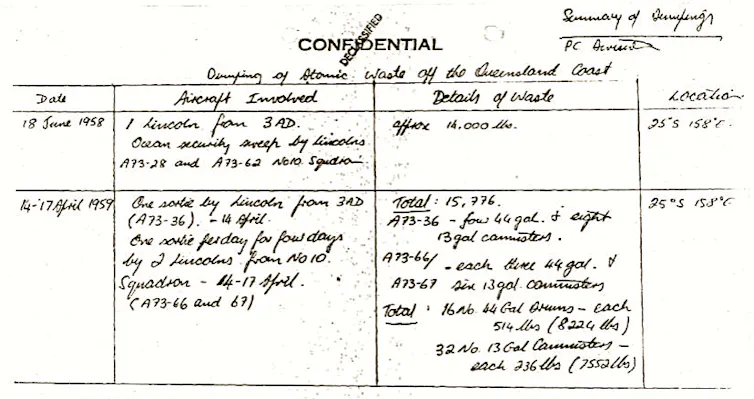 Summary of Dumpings
PC
CONFIDENTIAL
DECLASSIFIED
Dumping of Atomic Waste off the Queensland Coast
Date
Aircraft Involved
Details of Waste
Location
18 June 1958
1 Lincoln from 3 AD.
Ocean security sweep by Lincolns
A73-28 and A73-62 No10 Squadron
approx 14,000 lbs.
25°S 158°E.
14-17 April 1959
One sortie by Lincoln from 3AD
(A73-36). - 14 April.
One sortie per day for four days
by 2 Lincolns from No 10.
Squadron - 14-17 April.
(A73-66 and 67)
Total: 15,776.
A73-36 - four 44 gal. & eight
13 gal cannisters.
A73-66/ - each three 44 gal. &
A73-67 six 13 gal. cannisters
Total: 16 No. 44 Gal Drums - each
514 lbs (8224 lbs)
32 No. 13 Gal Cannisters -
each 236 lbs (7552 lbs)
25°S 158°E